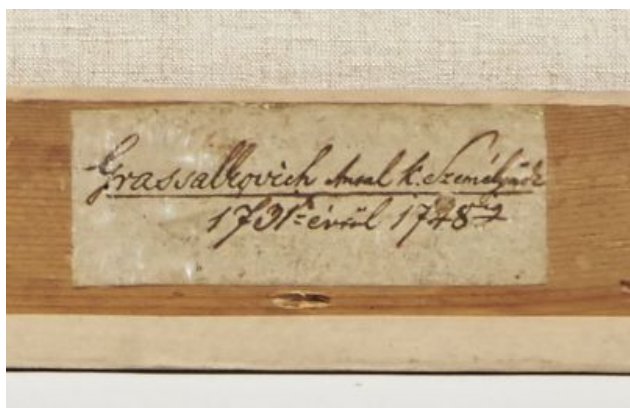 Grassalkovich Antal k. Személynök
1731ᵏ évtől 1748ⁱᵍ